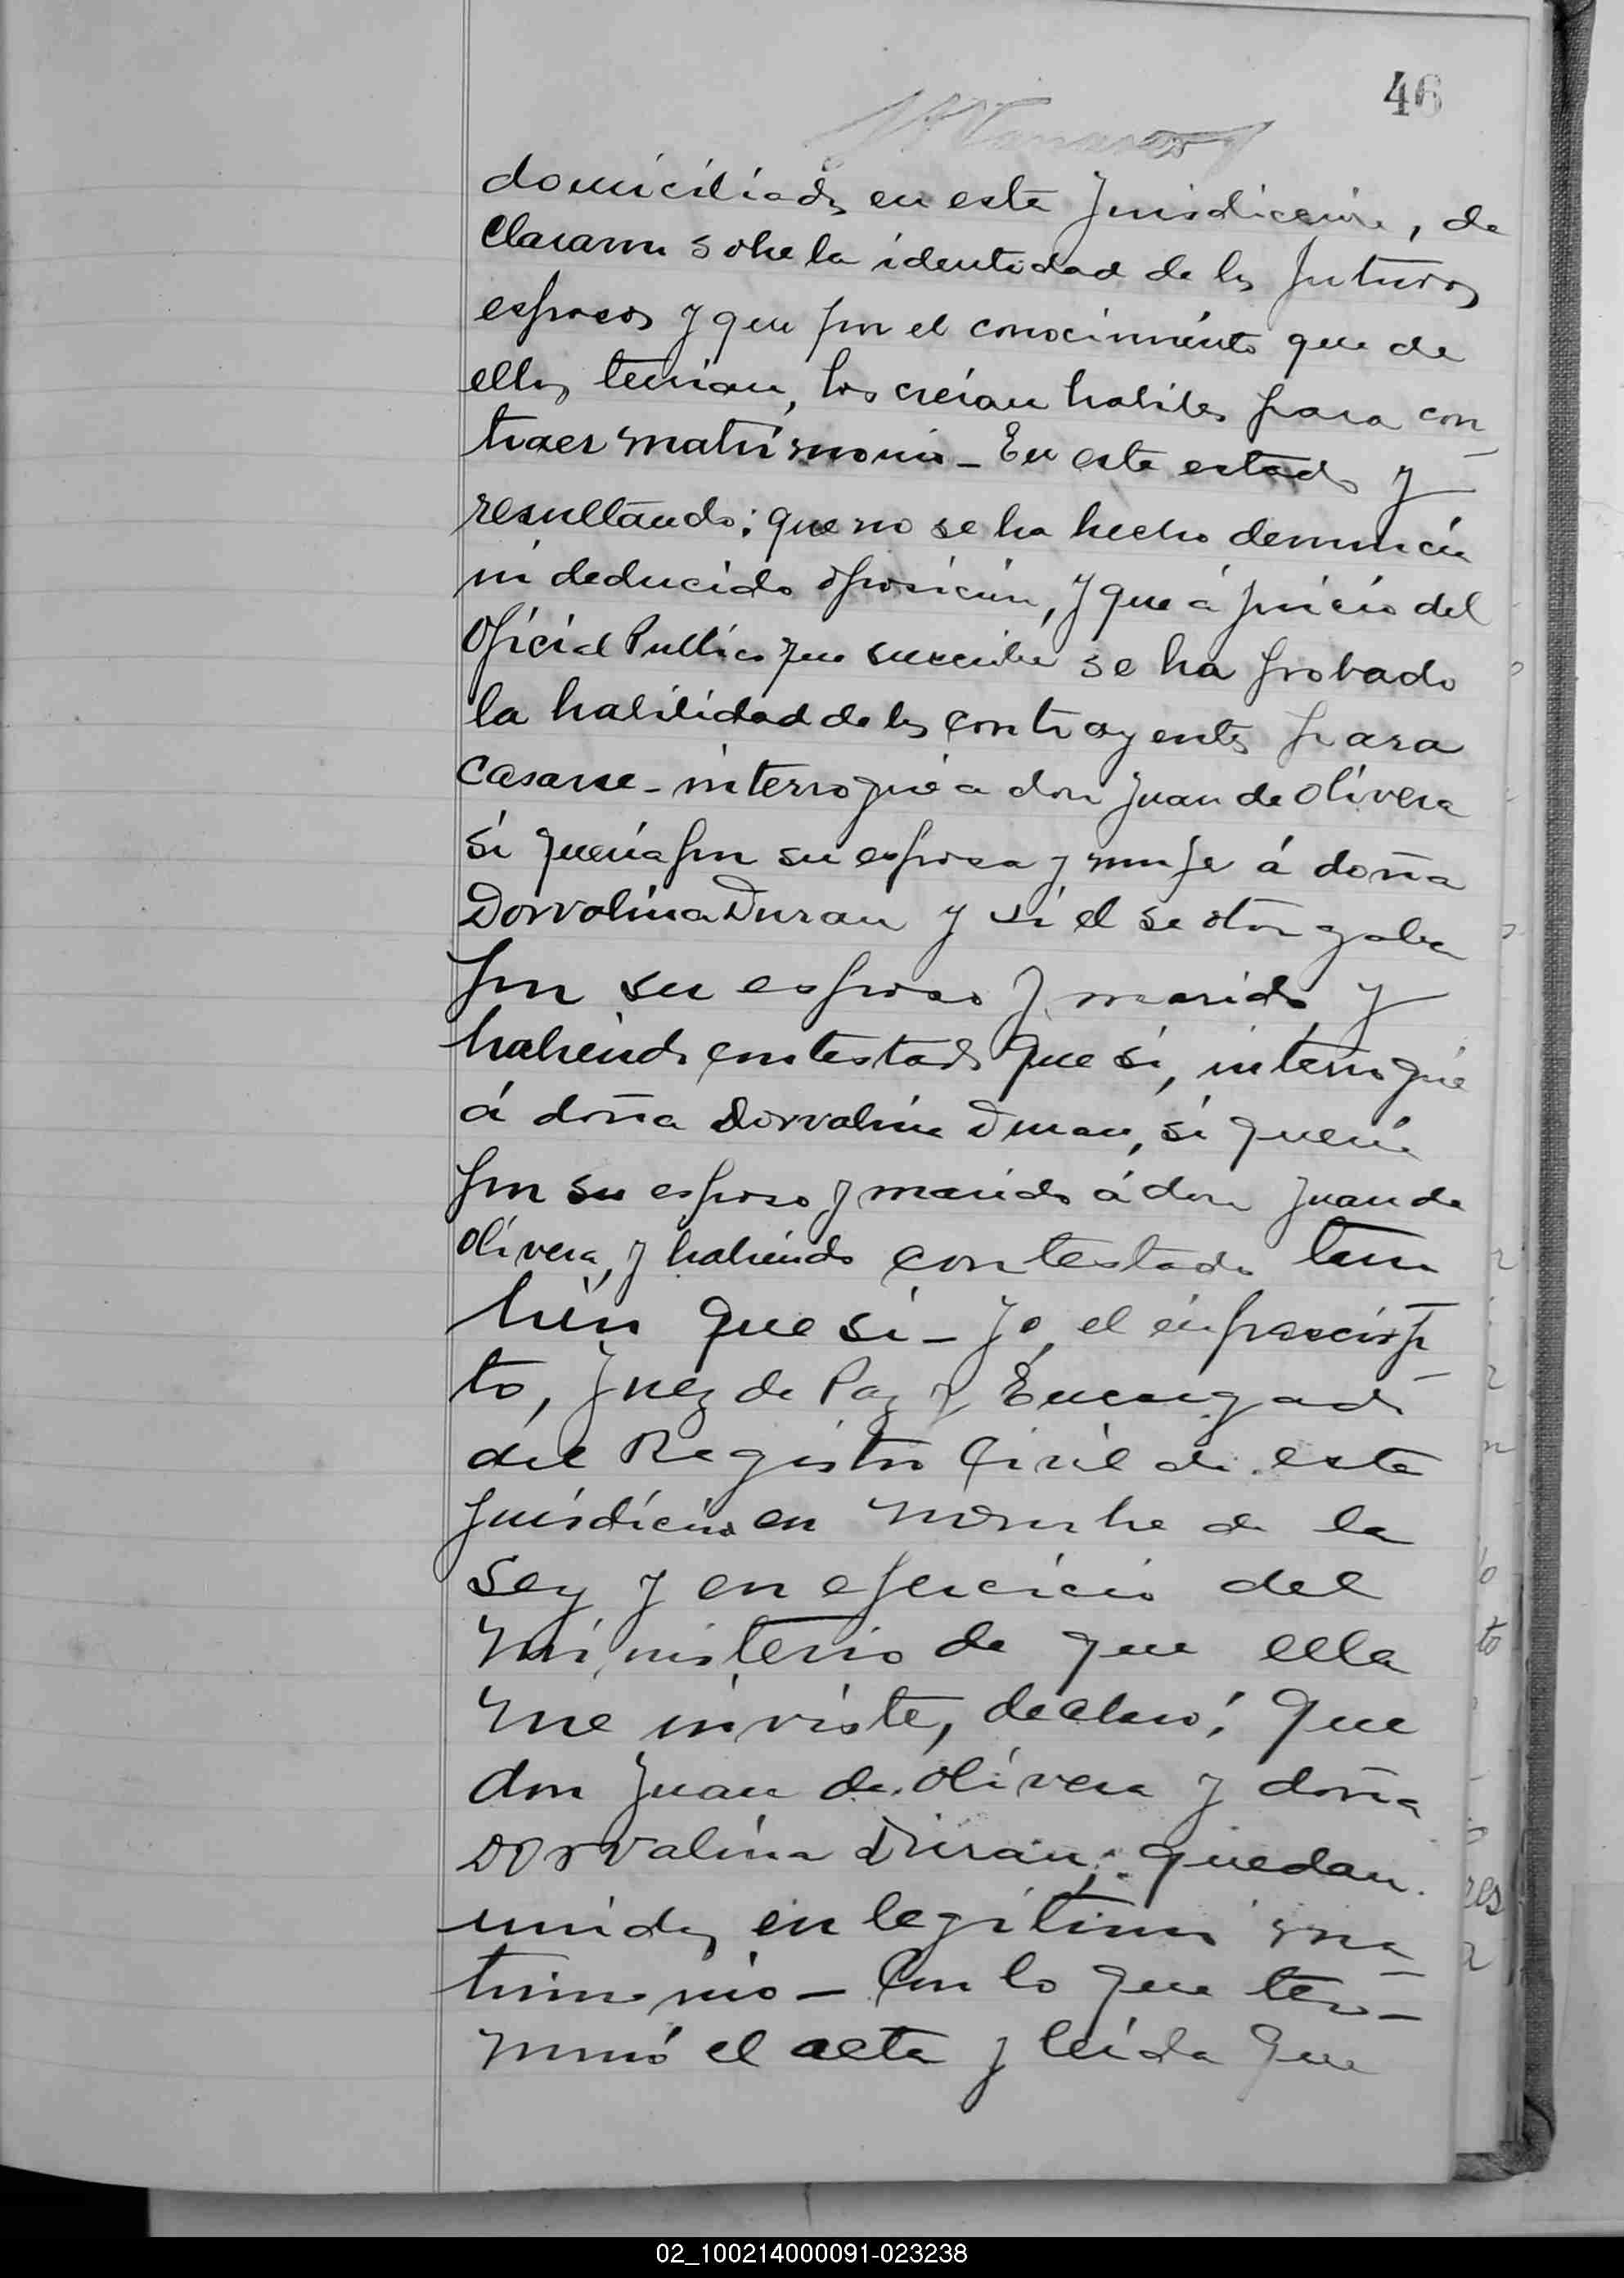 46
domiciliados en esta Jurisdicción, de
clararon sobre la identidad de los futuros
esposos y que por el conocimiento que de
ellos tenian, los creian habiles para con-
traer matrimonio - En este estado y
resultando: que no se ha hecho denuncia
ni deducido oposición, y que á juicio del
Oficial Publico que suscribe se ha probado
la habilidad de los contrayentes para
casarse - interrogué a don Juan de Olivera
si queria por su esposa y mujer á doña
Dorvalina Duran y si él se otorgaba
por su esposo y marido y
habiendo contestado que si, interrogué
á doña Dorvalina Duran, si queria
por su esposo y marido á don Juan de
Olivera, y habiendo contestado tam
bién que si - Yo, el infrascrip-
to, Juez de Paz y Encargado
del Registro Civil de esta
jurisdicción en nombre de la
Ley y en ejercicio del
Ministerio de que ella
me inviste, declaro: Que
don Juan de Olivera y doña
Dorvalina Duran, quedan
unidos en legitimo ma-
trimonio - Con lo que ter-
minó el acta y leida que
02_100214000091-023238